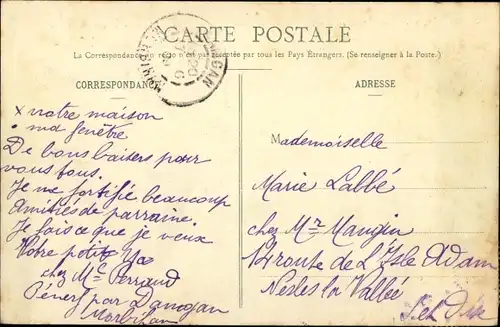 CARTE POSTALE
La Correspondance au recto n'est pas acceptée par tous les Pays Étrangers. (Se renseigner à la Poste.)
CORRESPONDANCE
x notre maison
. ma fenêtre
De bons baisers pour
vous tous.
Je me fortifie beaucoup
Amitiés de parraine.
Je fais ce que je veux
Votre petite
chez Me Perraud
Pénerf par Damgan
Morbihan
ADRESSE
Mademoiselle
Marie Labbé
chez Mr Mangin
14 route de L'Isle Adam
Nesles la Vallée
S et Oise
DAMGAN
MORBIHAN